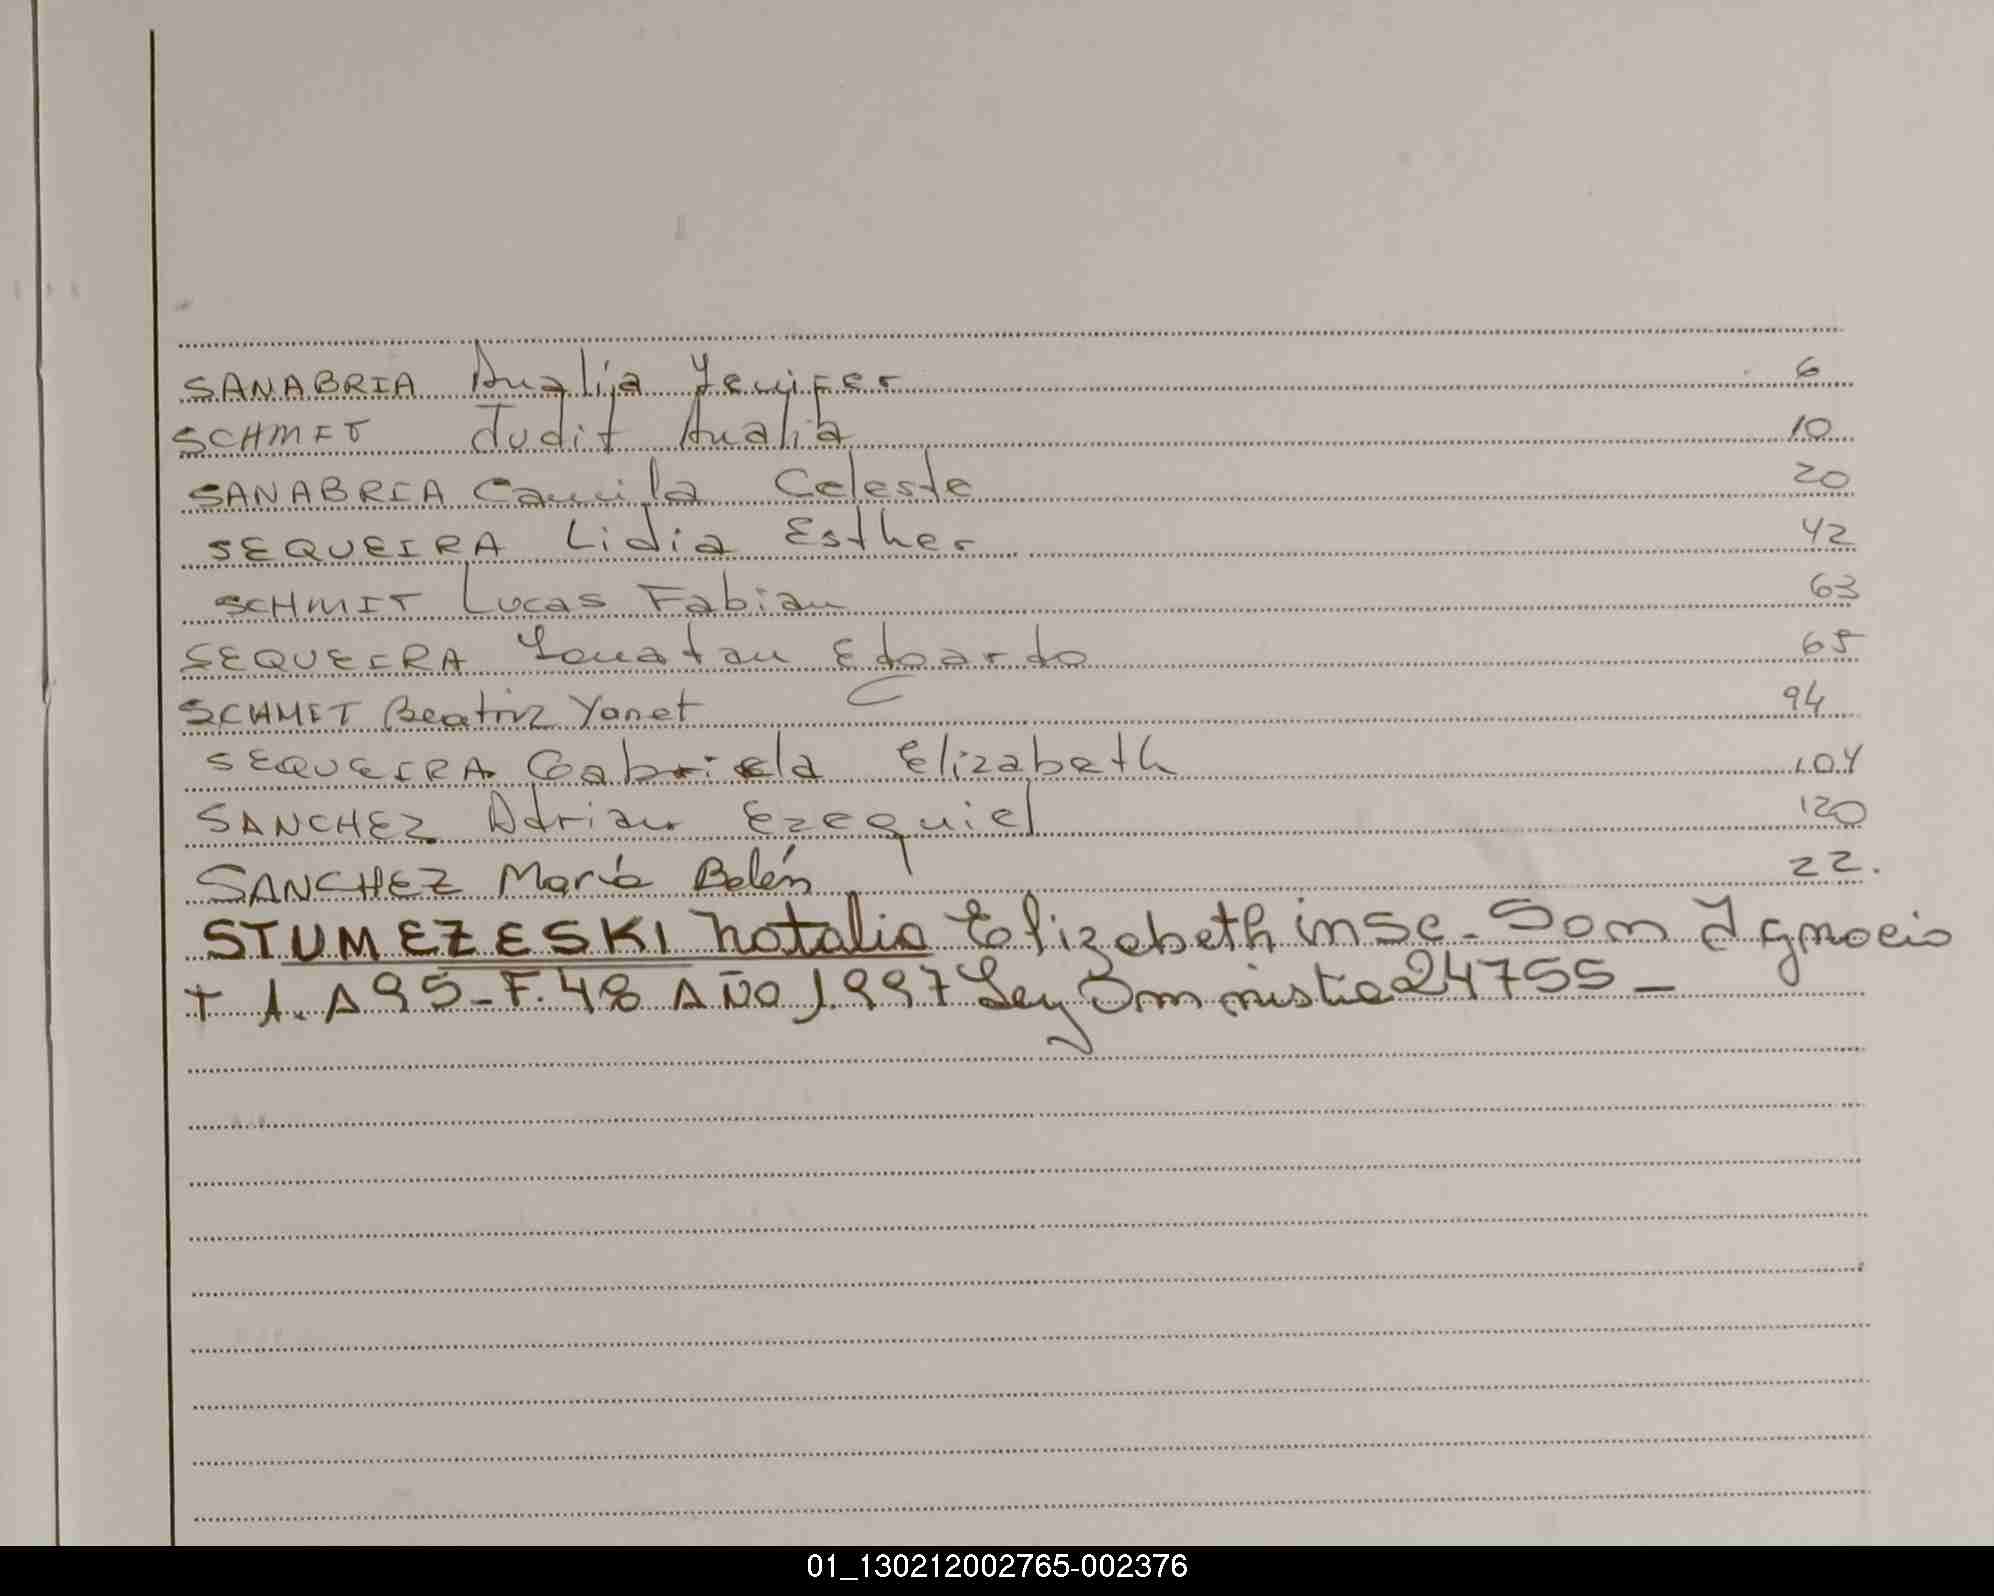 SANABRIA Analia Yenifer 6
SCHMIT Judit Analia 10
SANABRIA Camila Celeste 20
SEQUEIRA Lidia Esther 42
SCHMIT Lucas Fabian 63
SEQUEIRA Yonatan Eduardo 65
SCHMIT Beatriz Yanet 94
SEQUEIRA Gabriela Elizabeth 104
SANCHEZ Adrian Ezequiel 120
SANCHEZ María Belén 22.
STUMEZESKI Natalia Elizabeth insc. San Ignacio
T 1. A 95 - F. 48 AÑO 1.997 Ley Amnistia 24755 -
01_130212002765-002376